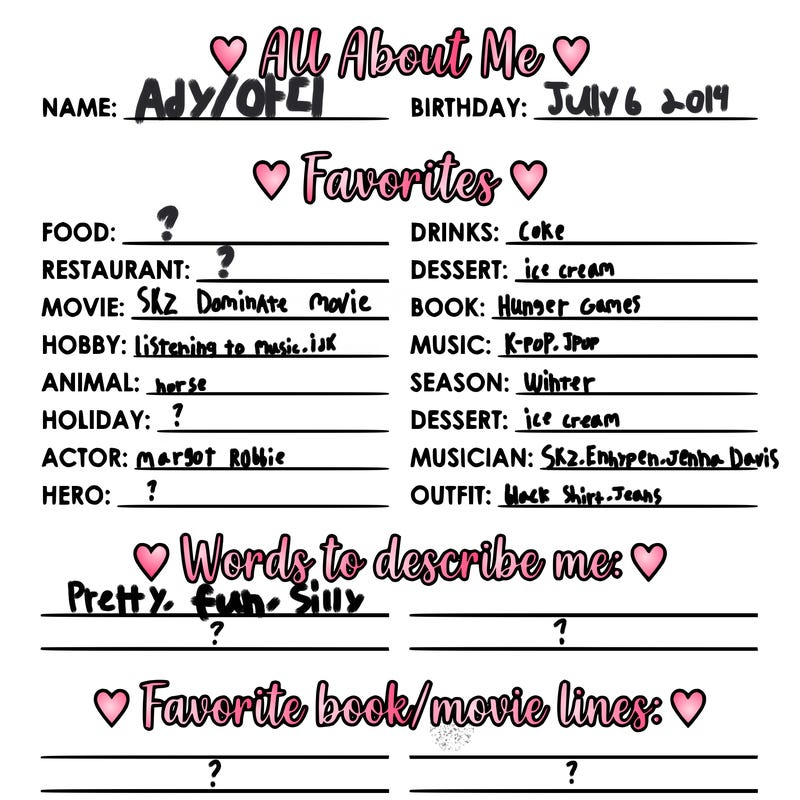 All About Me
NAME: Ady/아디 BIRTHDAY: Jully 6 2014
Favorites
FOOD: ? DRINKS: Coke
RESTAURANT: ? DESSERT: ice cream
MOVIE: SKZ DominAte movie BOOK: Hunger Games
HOBBY: listening to music.idk MUSIC: K-pop. Jpop
ANIMAL: horse SEASON: Winter
HOLIDAY: ? DESSERT: ice cream
ACTOR: margot Robbie MUSICIAN: SKZ.Enhypen.Jenna Davis
HERO: ? OUTFIT: black shirt.Jeans
Words to describe me:
Pretty. fun. Silly
? ?
Favorite book/movie lines:
? ?